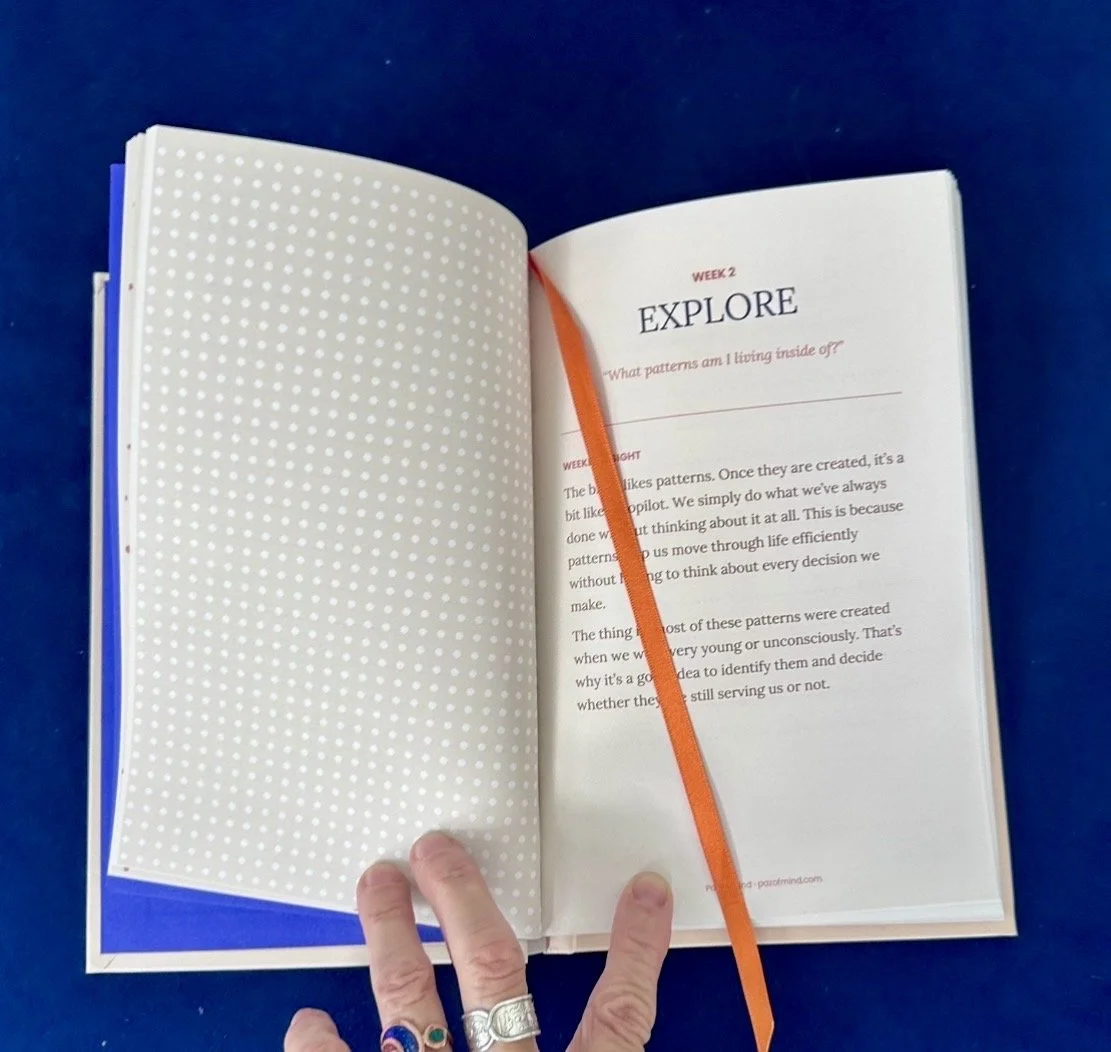 WEEK 2
EXPLORE
“What patterns am I living inside of?”
The likes patterns. Once they are created, it’s a
bit like We simply do what we’ve always
done thinking about it at all. This is because
patterns us move through life efficiently
without to think about every decision we
make.
The thing of these patterns were created
when we very young or unconsciously. That’s
why it’s a idea to identify them and decide
whether still serving us or not.
pazofmind.com